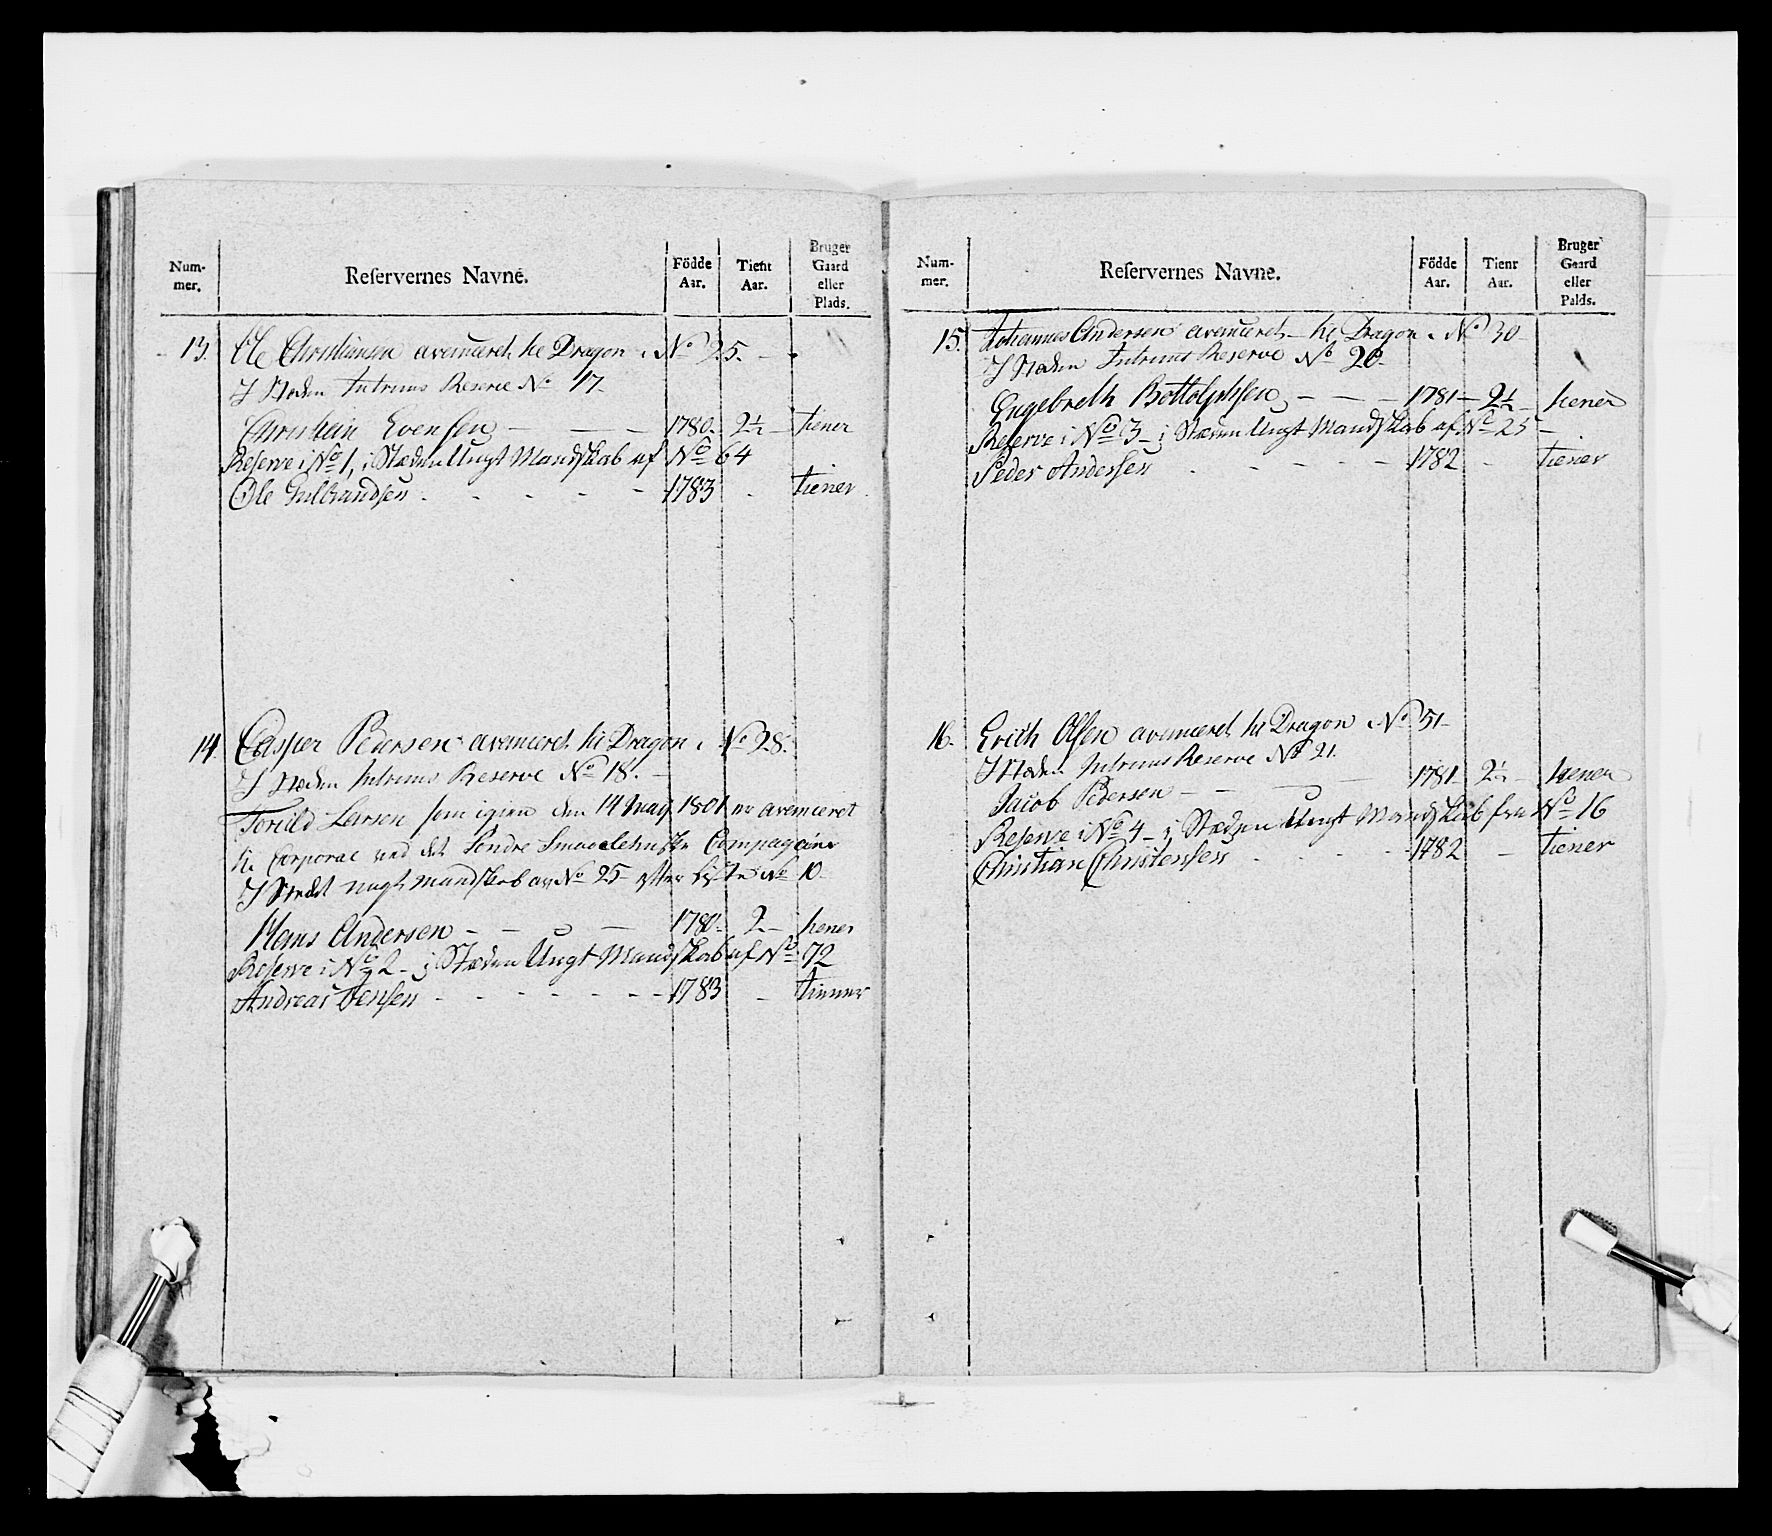 Num-
mer.
Reservernes Navne.
Födde
Aar.
Tient
Aar.
Bruger
Gaard
eller
Plads.
13. Ole Christiansen avenceret til Dragon No 25.
I Steden Intrims Reserve No 17.
Christian Evensen 1780. 2½ tiener
Reserve i No 1, i Stæden Ungt Mandskab af No 64
Ole Gulbrandsen 1783 tiener
14. Casper Pedersen avenceret til Dragon No 28.
I Steden Intrims Reserve No 18.
Toruld Larsen som igien den 14 May 1801 er avenceret
til Corporal ved det Söndre Smaalehnske Compagnie
I Stædet ungt mandskab av No 25 efter Liste No 10
Hans Andersen 1780. 2 tiener
Reserve i No 2 i Stæden Ungt Mandskab af No 72
Andreas Jensen 1783 tiener
Num-
mer.
Reservernes Navne.
Födde
Aar.
Tient
Aar.
Bruger
Gaard
eller
Palds.
15. Johannes Andersen avenceret til Dragon No 30
I Steden Intrims Reserve No 20.
Engebreth Bottolphsen 1781 2½ tiener
Reserve i No 3 i Stæden Ungt Mandskab af No 25
Peder Andersen 1782 tiener
16. Erich Olsen avenceret til Dragon No 31
I Steden Intrims Reserve No 21.
Jacob Pedersen 1781. 2½ tiener
Reserve i No 4 i Stæden Ungt Mandskab fra No 16
Christian Christensen 1782 tiener